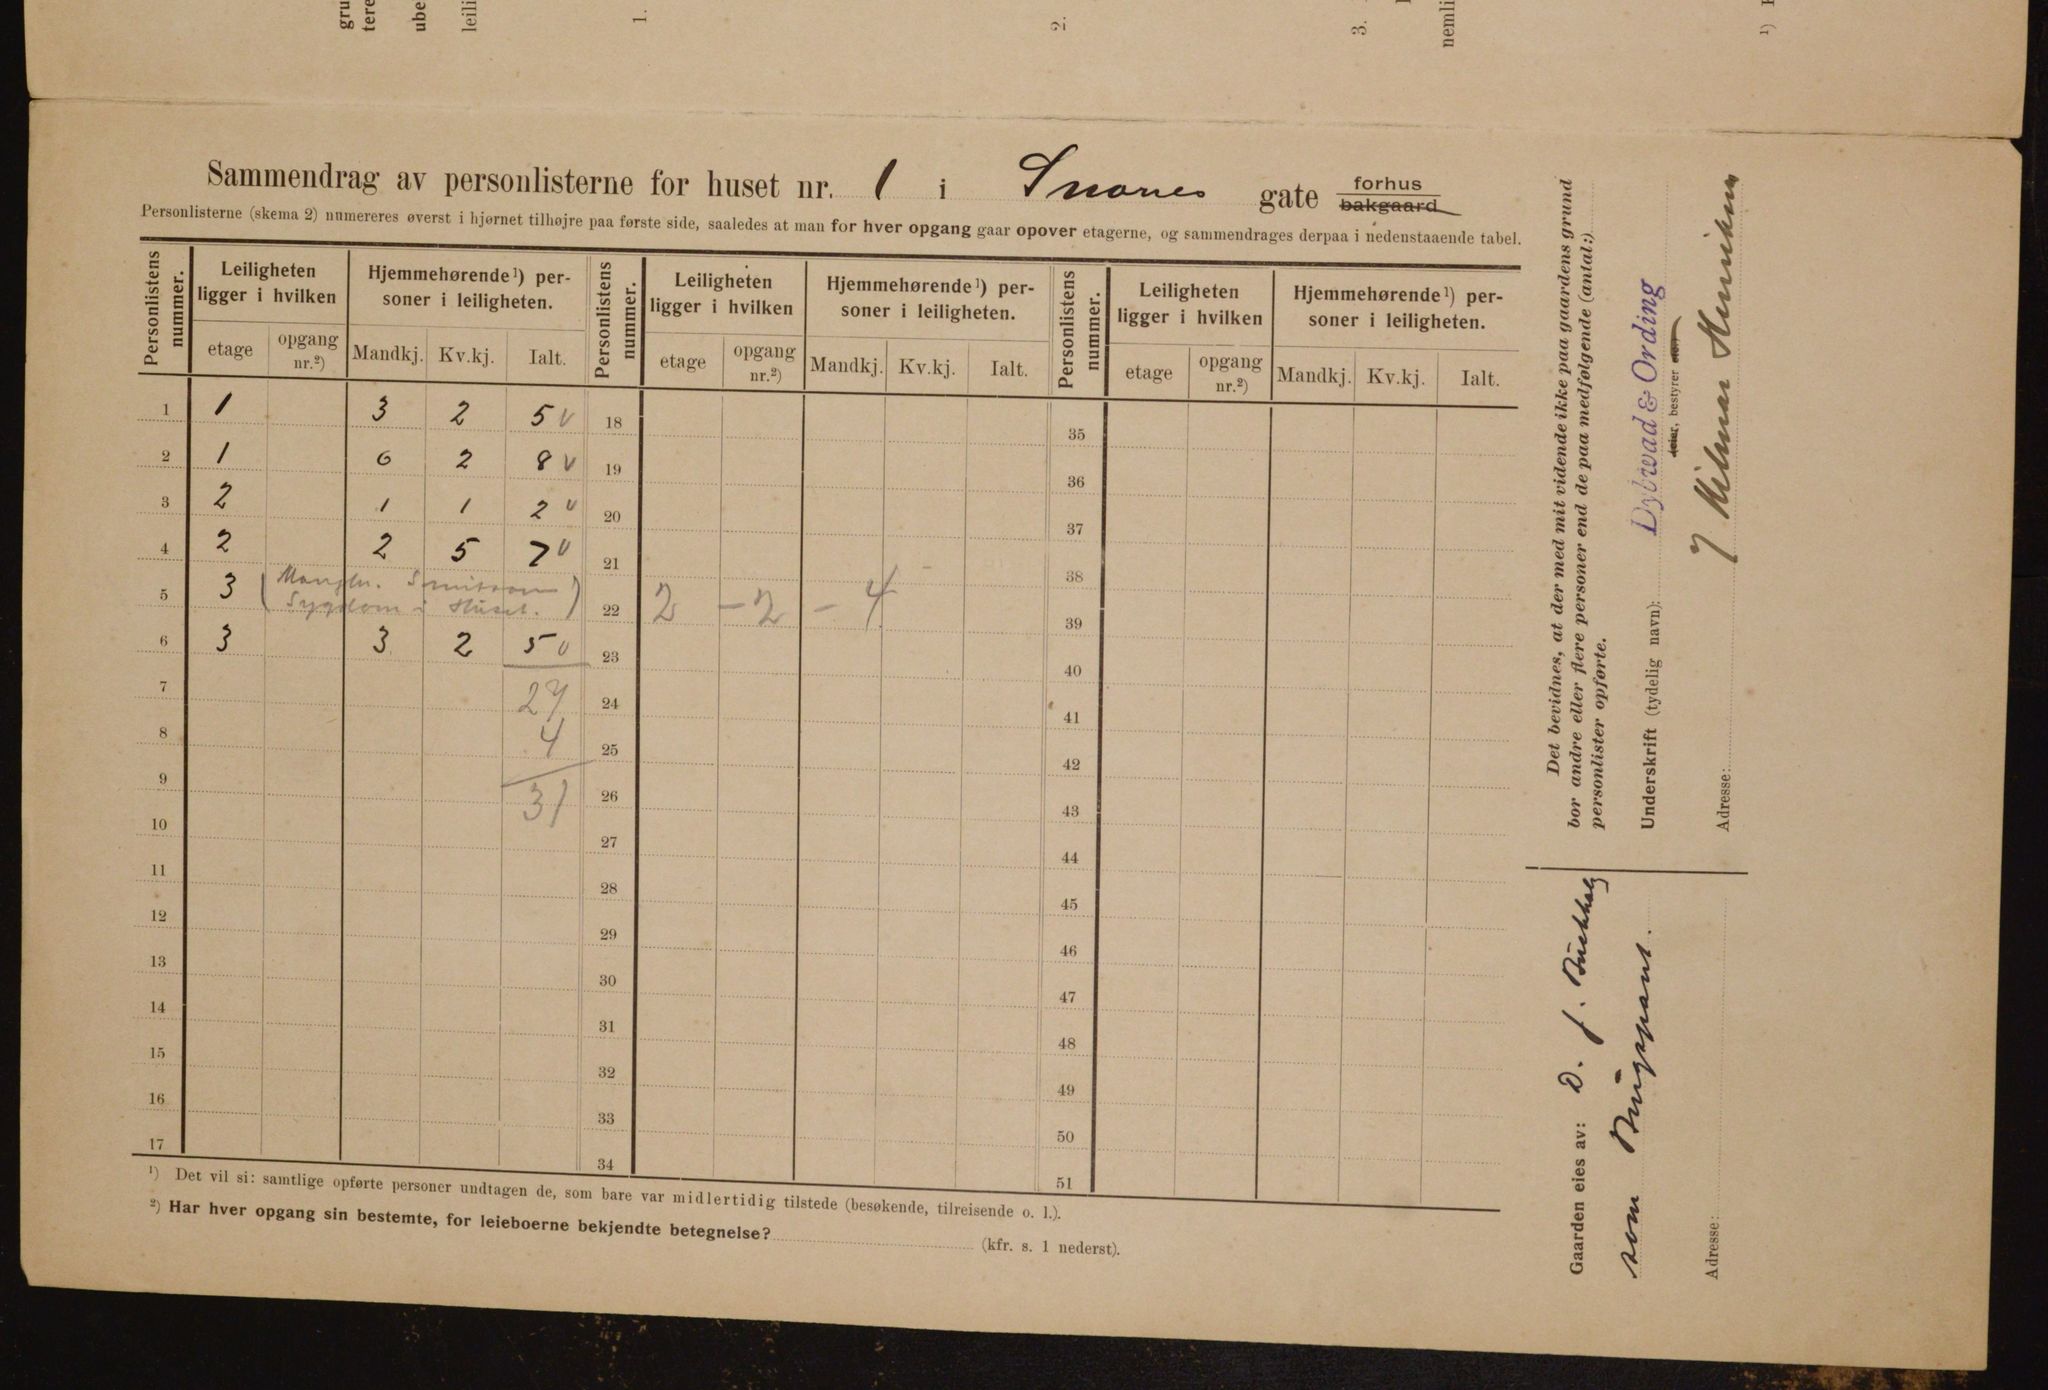 gru
tere
ube
leili
1.
2.
3.
nemli
1)
Sammendrag av personlisterne for huset nr. 1 i Snores gate forhus
bakgaard
Personlisterne (skema 2) numereres øverst i hjørnet tilhøjre paa første side, saaledes at man for hver opgang gaar opover etagerne, og sammendrages derpaa i nedenstaaende tabel.
Personlistens nummer. Leiligheten ligger i hvilken Hjemmehørende¹) personer i leiligheten. Personlistens nummer. Leiligheten ligger i hvilken Hjemmehørende¹) personer i leiligheten. Personlistens nummer. Leiligheten ligger i hvilken Hjemmehørende¹) personer i leiligheten.
etage opgang nr.²) Mandkj. Kv.kj. Ialt. etage opgang nr.²) Mandkj. Kv.kj. Ialt. etage opgang nr.²) Mandkj. Kv.kj. Ialt.
1 1 3 2 5 v 18 35
2 1 6 2 8 v 19 36
3 2 1 1 2 v 20 37
4 2 2 5 7 v 21 38
5 3 (Mangler. Smitsom Sygdom i Huset.) 22 2 - 2 - 4 39
6 3 3 2 5 v 23 40
7 27 24 41
8 4 25 42
9 31 26 43
10 27 44
11 28 45
12 29 46
13 30 47
14 31 48
15 32 49
16 33 50
17 34 51
¹) Det vil si: samtlige opførte personer undtagen de, som bare var midlertidig tilstede (besøkende, tilreisende o. l.).
²) Har hver opgang sin bestemte, for leieboerne bekjendte betegnelse? (kfr. s. 1 nederst).
Det bevidnes, at der med mit vidende ikke paa gaardens grund
bor andre eller flere personer end de paa medfølgende (antal:)
personlister opførte.
Underskrift (tydelig navn): Dybwad & Ording
eier, bestyrer eien
Hilmar Henriksen
Adresse:
Gaarden eies av: D. J.
som Brugspant.
Adresse: